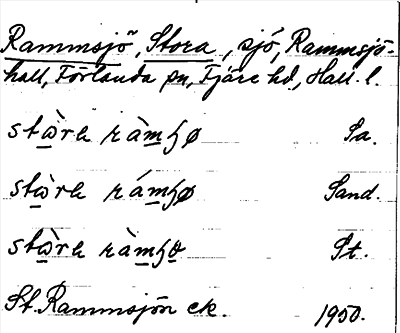 Rammsjö, Stora, sjö, Rammsjö-
hall, Förlanda sn, Fjäre hd, Hall. l.
stὼra ràmʂø Sa.
stὼra rámʂø Sand.
stὼra ràmʂö St.
St. Rammsjön ek. 1950.